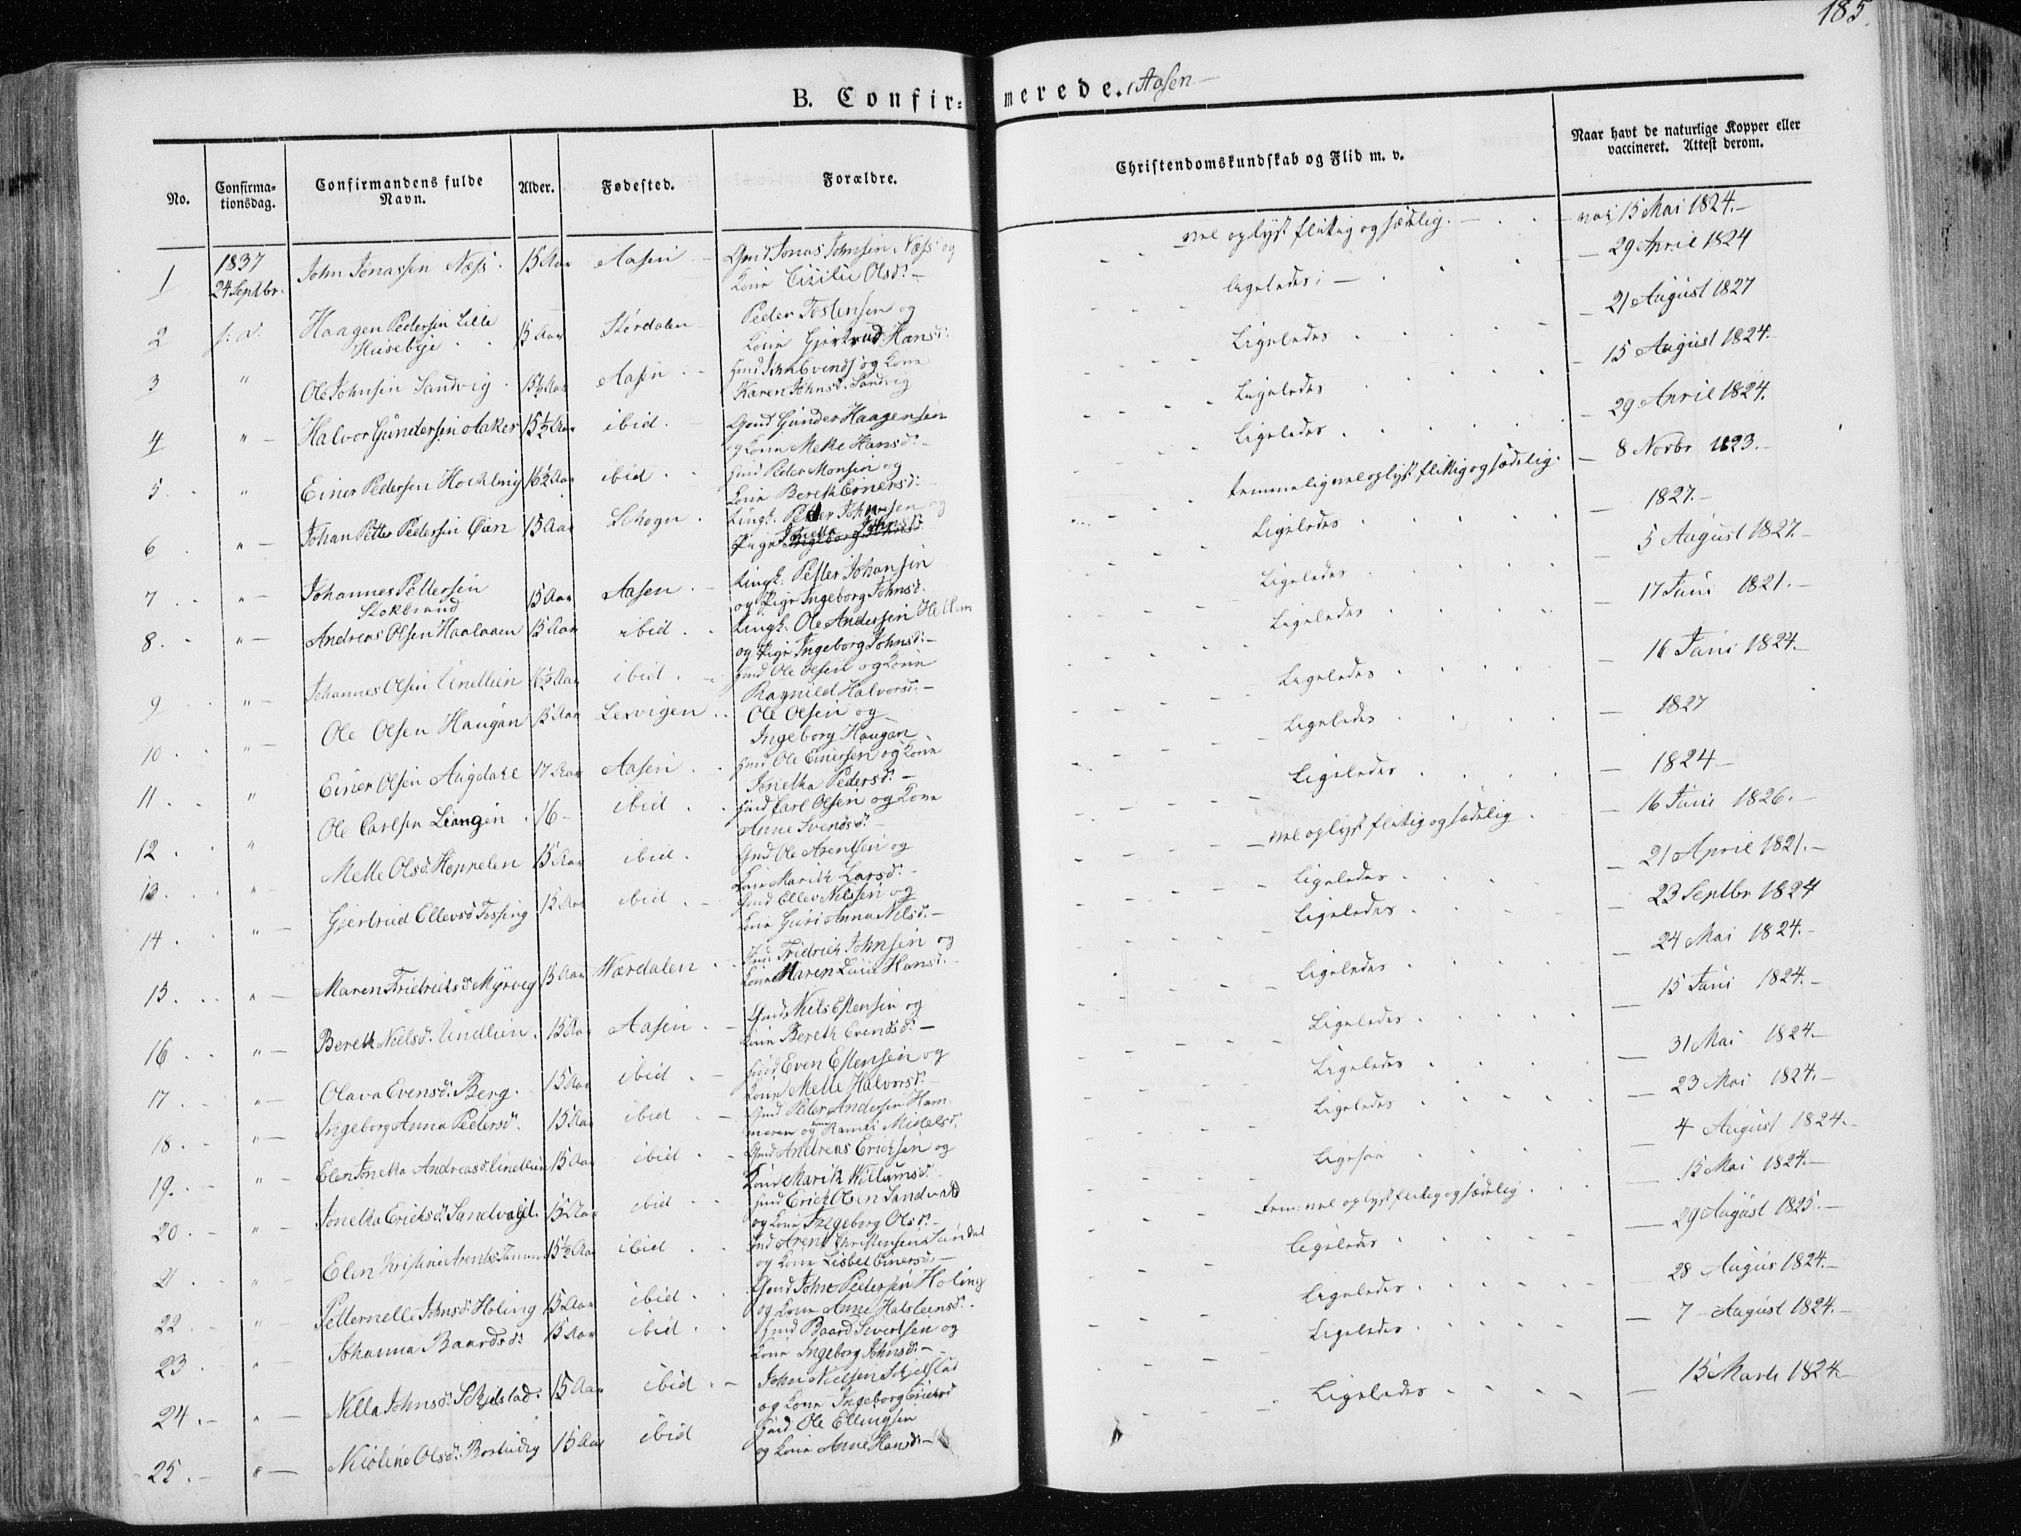 185.
B. Confirmerede. Aasen
No.
Confirmationsdag.
Confirmandens fulde Navn.
Alder.
Fødested.
Forældre.
Christendomskundskab og Flid m. v.
Naar havt de naturlige Kopper eller vaccineret. Attest derom.
1837
1 24 Septbr. John Jonassen Næss 15 Aar Aasen Gmd Jonas Johnsen Næss og Kone Cizilie Olsd: vel oplyst flittig og sædelig. 15 Mai 1824.
2 Haagen Pedersen Lille Husebye 15 Aar Størdalen Peder Tostensen og Kone Gjertrud Hansd: ligeledes 29 April 1824
3 " Ole Johnsen Sandvig 15½ Aar Aasen Karen Johnsd. Sandvig Ligeledes 21 August 1827
4 " Halvor Gundersen Aaker 15½ Aar ibid. Gmd Gunder Haagensen og Kone Mette Hansd: Ligeledes 15 August 1824.
5 " Einer Pedersen Hochling 16½ Aar ibid Gmd Peder Monsen og Kone Bereth Einersd: Ligeledes 29 April 1824.
6 " Johan Petter Pedersen 15 Aar Schogn Ungk. Peder Johnsen og Pige temmelig vel oplyst flittig og sædelig. 8 Novbr 1823.
7 " Johannes Pettersen Stokstrand 15 Aar Aasen Ungk. Petter Johansen og Pige Ingeborg Johnsd. Ligeledes 1827.
8 " Andreas Olsen Haalaaen 15 Aar ibid Ungk. Ole Andersen og Pige Ingeborg Johnsd: Ligeledes 5 August 1827.
9 " Johannes Olsen 16½ Aar ibid. Gmd Ole Olsen og Kone Ragnild Halvorsd. Ligeledes 17 Juni 1821.
10 " Ole Olsen Haugan 15 Aar Lexvigen Ole Olsen og Ingeborg Haugan Ligeledes 16 Juni 1824.
11 " Einer Olsen Augdahl 17 Aar Aasen Gmd Ole Einersen og Kone Jonetha Pedersd. Ligeledes 1827
12 " Ole Carlsen 16 ibid Gmd Carl Olsen og Kone Anne Svendsd. Ligeledes 1824
13 " Mette Olsd. 15 Aar ibid. Gmd Ole Arentsen og Kone Marith Larsd. vel oplyst flittig og sædelig 16 Juni 1826.
14 " Gjertrud Ellevsd. Fossing 15 Aar ibid Gmd Ellev Nilsen og Kone Guri Anna Nilsd. Ligeledes 21 April 1821.
15 " Maren Fridrichsd. Myrveg 15 Aar Værdalen Fridrich Johnsen og Kone Maren Hansd. Ligeledes 23 Septbr 1824
16 " Bereth Nielsd. 15 Aar Aasen Gmd Niels Estensen og Kone Bereth Evensd. Ligeledes 24 Mai 1824.
17 " Olava Evensd. Berg. 15 Aar ibid Gmd Even Estensen og Kone Mette Halvorsd. Ligeledes 15 Juni 1824.
18 " Ingeborg Anna Pedersd. 15 Aar ibid Gmd Peder Andersen Hammeren og Kone Randi Mickelsd. Ligeledes 31 Mai 1824.
19 " Elen Jonetha Andreasd. 15 Aar ibid Gmd Andreas Ericksen og Kone Marith Willumsd. Ligeledes 23 Mai 1824.
20 " Jonetha Ericksd. Sandvald 15½ Aar ibid Gmd Erick Olsen Sandvald og Kone Ingeborg Olsd. Ligesaa 4 August 1824.
21 " Elen Kristine Arentsd. 15½ Aar ibid Gmd Arent Christensen og Kone Lisbet Einersd. tem: vel oplyst flittig og sædelig. 15 Mai 1824.
22 " Petternelle Johnsd. Holing 15 Aar ibid. Gmd John Pedersen Holing og Kone Anne Halsteensd. Ligeledes 29 August 1825.
23 " Johanna Baardsd. 15 Aar ibid Gmd Baard Sivertsen og Kone Ingeborg Johnsd. Ligeledes 28 August 1824.
24 " Nilla Johnsd. Schjelstad 15 Aar ibid John Nielsen Schjelstad og Kone Ingeborg Ericksd Ligeledes 7 August 1824.
25 " Nicoline Olsd. 15 Aar ibid Gmd Ole Ellingsen og Kone Anne Hansd. Ligeledes 15 Marts 1824.